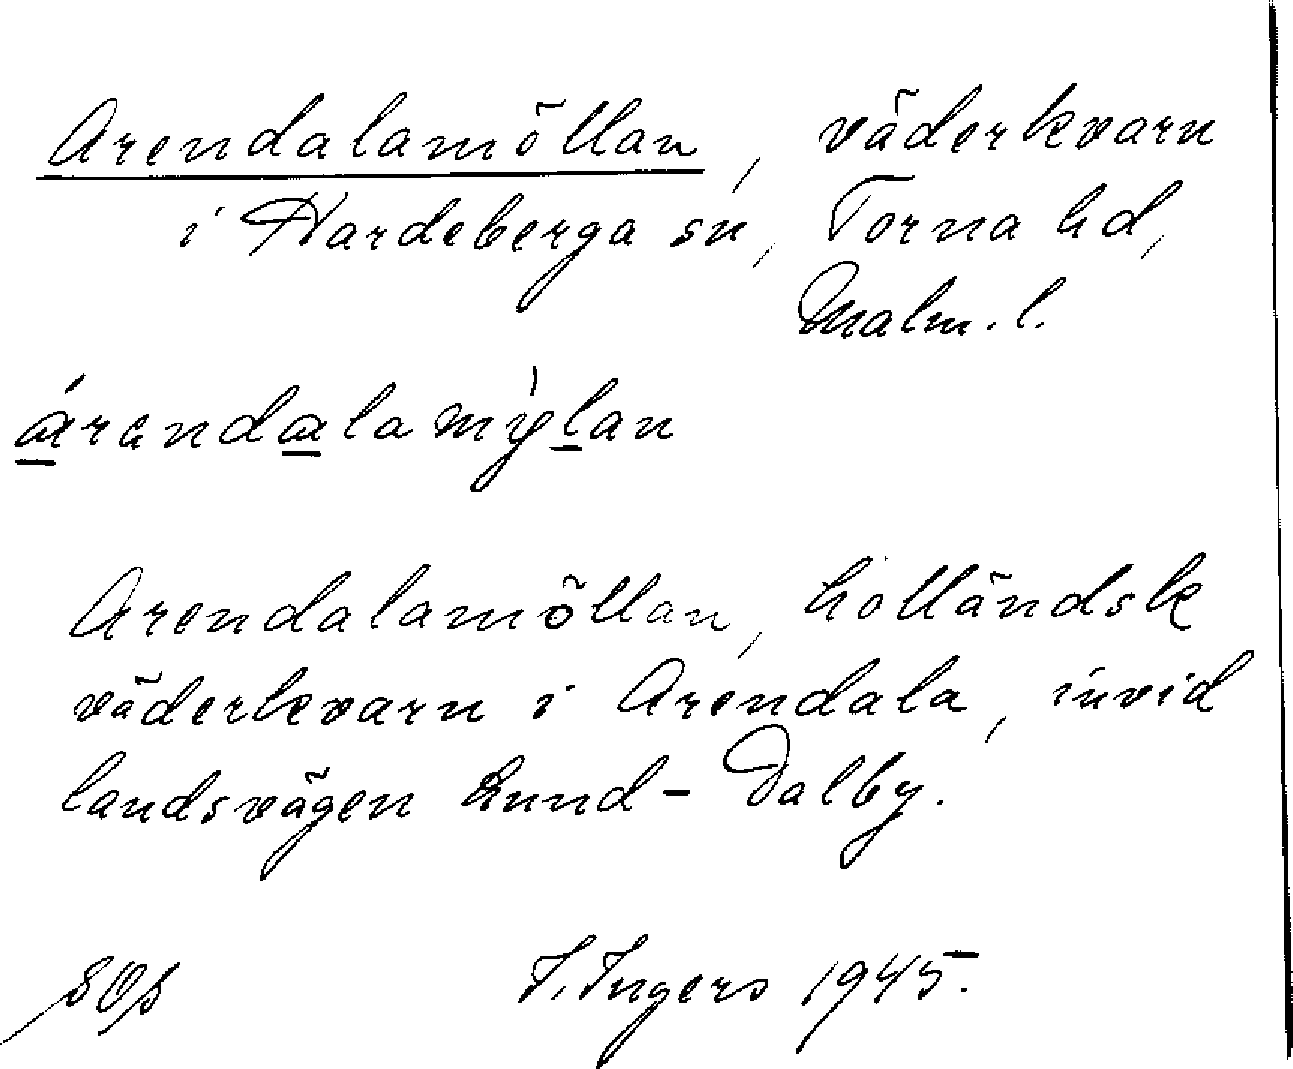 Arendalamöllan, väderkvarn
i Hardeberga sn, Torna hd,
Malm. l.
árandalamỳlan
Arendalamöllan, holländsk
väderkvarn i Arendala, invid
landsvägen Lund - Dalby.
I. Ingers 1945.